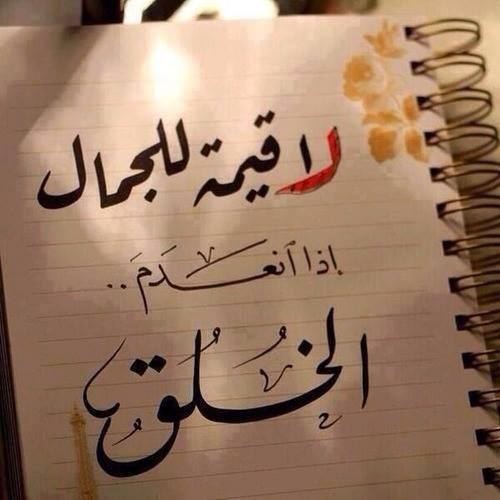 لا قيمة للجمال
إذا ٱنعَدَمَ..
الخُلُقُ